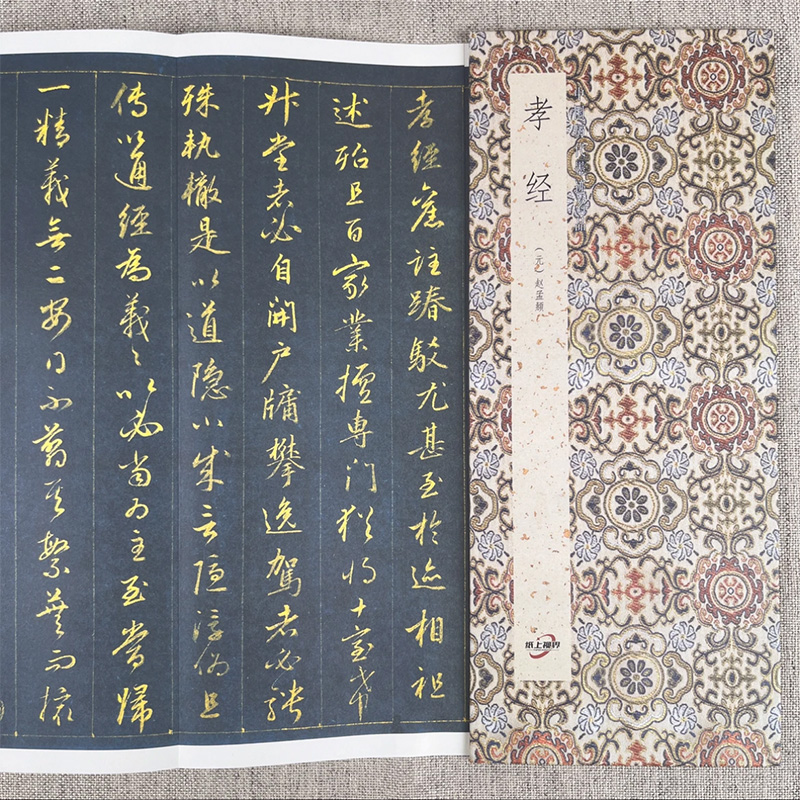 孝經舊註踳駁尤甚至於迹相祖
述殆且百家業擅專門猶將十室希
升堂者必自開户牖攀逸駕者必騁
殊軌轍是以道隐小成言隐浮偽且
傳以通經為義〻以必當為主至當歸
一精義無二安得不翦其繁蕪而撮
孝经
（元）赵孟頫
纸上视界